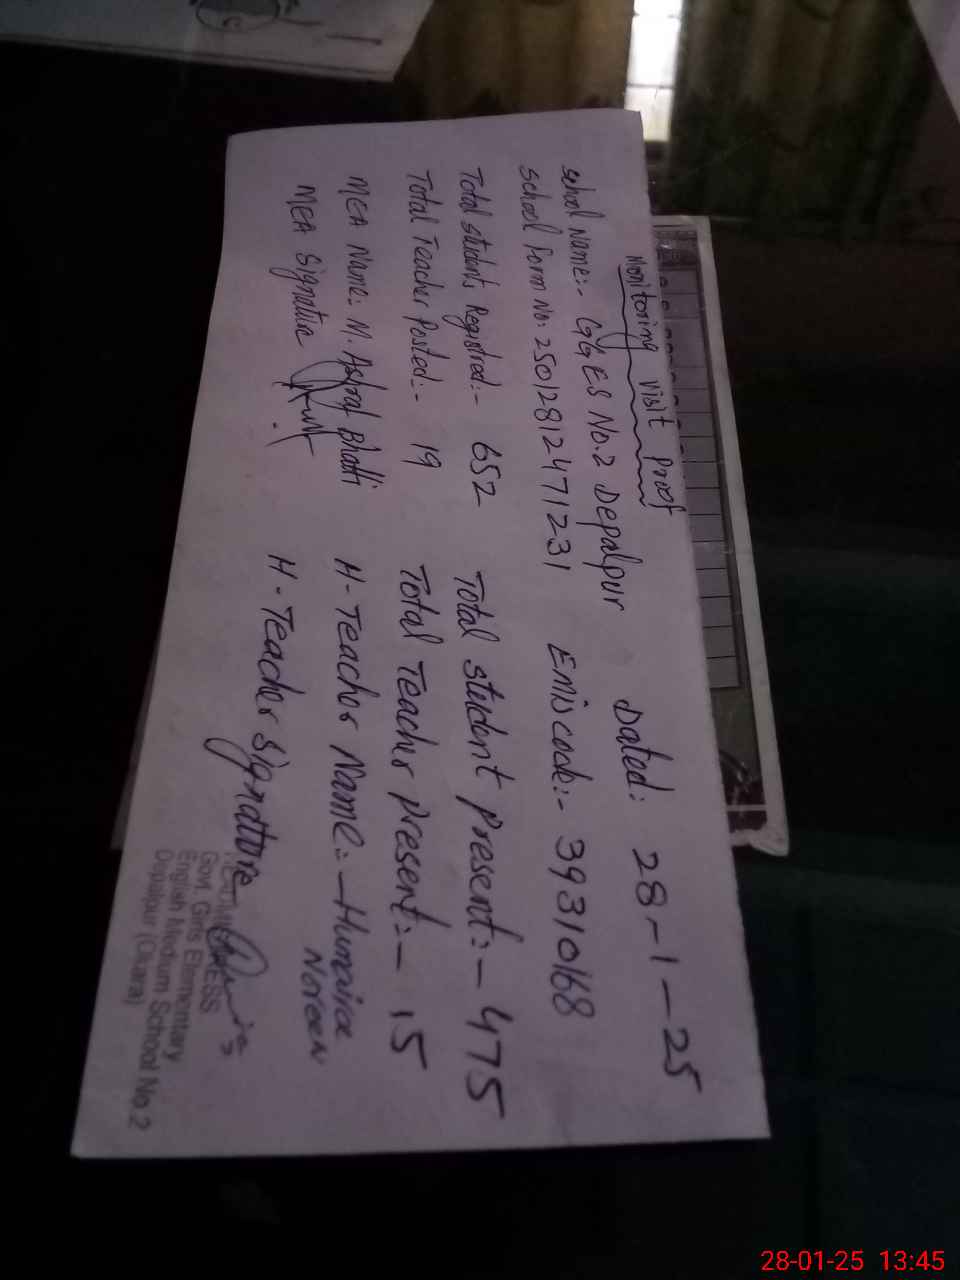 Monitoring visit Proof
School Name:- GGES No.2 Depalpur Dated: 28-1-25
School Form No: 250128124712​31 Emiscode:- 39310168
Total students Registred:- 652 Total student present:- 475
Total Teacher Posted:- 19 Total Teacher present:- 15
MEA Name: M. Ashraf Bhatti H-Teacher Name:- Humaira Noreen
MEA Signature H-Teacher Signature
Govt. Girls Elementary
English Medium School No.2
Depalpur (Okara)
28-01-25 13:45